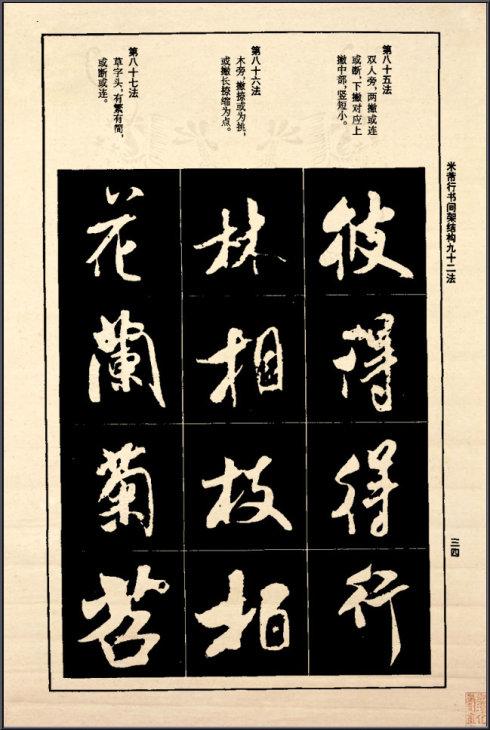 米芾行书间架结构九十二法
第八十五法
双人旁，两撇或连
或断，下撇对应上
撇中部，竖短小。
彼
得
得
行
第八十六法
木旁，撇捺或为挑，
或撇长捺缩为点。
林
相
枝
柏
第八十七法
草字头，有繁有简，
或断或连。
花
蘭
菊
苕
三四